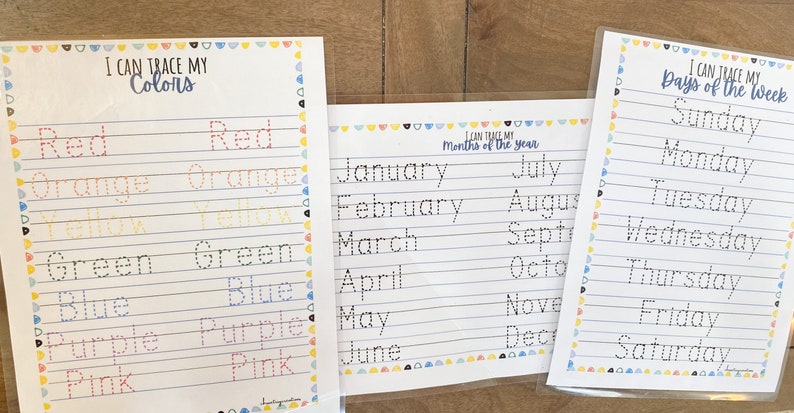 I CAN TRACE MY
Colors
Red Red
Orange Orange
Yellow Yellow
Green Green
Blue Blue
Purple Purple
Pink Pink
I CAN TRACE MY
Months of the Year
January July
February Augus
March Septe
April Octo
May Nove
June Dece
I CAN TRACE MY
Days of the Week
Sunday
Monday
Tuesday
Wednesday
Thursday
Friday
Saturday